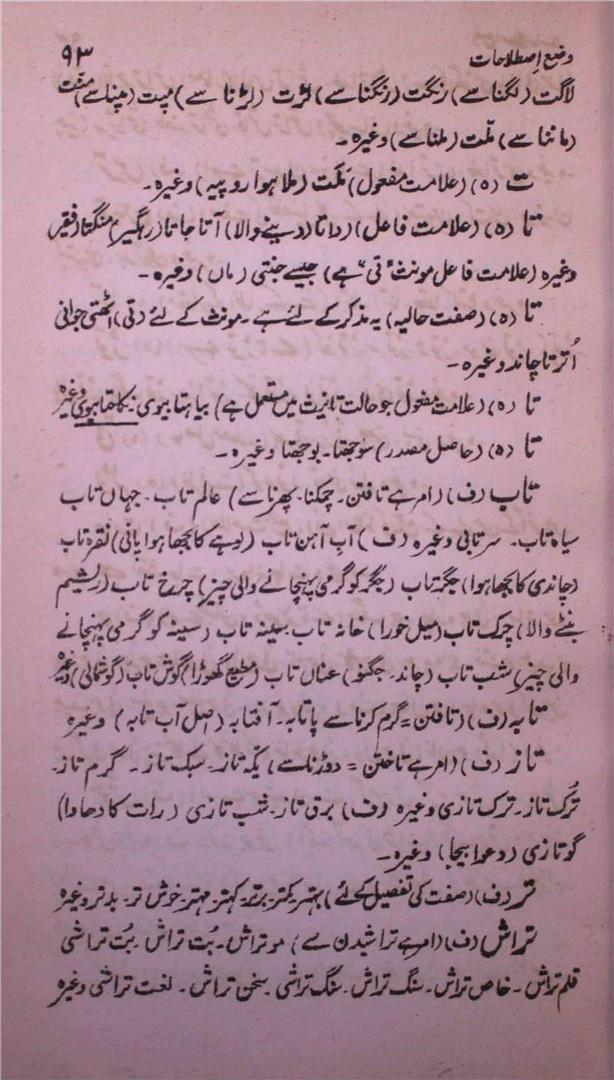 وضع اِصطلاحات ۹۳
لاگت (لگنا سے) رنگت (رنگنا سے) لڑت (لڑنا سے) مپت (مپنا سے) منّت
(ماننا سے) ملّت (ملنا سے) وغیرہ۔
ت (ہ) (علامت مفعول) مَلَت (ملا ہوا روپیہ) وغیرہ۔
تا (ہ) (علامت فاعل) داتا (دینے والا) آتا جاتا (رہگیر) منگتا (فقیر)
وغیرہ (علامت فاعل مونث "تی" ہے) جیسے جنتی (ماں) وغیرہ۔
تا (ہ) (صفت حالیہ) یہ مذکر کے لئے ہے۔ مونث کے لئے (تی) اٹھتی جوانی
اُترتا چاند وغیرہ۔
تا (ہ) (علامت مفعول جو حالت تانیث میں مستعمل ہے) بیاہتا بیوی۔ نکاحتا بیوی وغیرہ
تا (ہ) (حاصل مصدر) سوجھتا۔ بوجھتا وغیرہ۔
تاب (ف) (امر ہے تافتن۔ چمکنا۔ پھرنا سے) عالم تاب۔ جہاں تاب
سیاہ تاب۔ سرتابی وغیرہ (ف) آب آہن تاب (لوہے کا بجھا ہوا پانی) نقرہ تاب
(چاندی کا بجھا ہوا) جگر تاب (جگر کو گرمی پہنچانے والی چیز) چرخ تاب (ریشیم
بنٹے والا) چرک تاب (میل خورا) خانہ تاب۔ سینہ تاب (سینہ کو گرمی پہنچانے
والی چیز) شب تاب (چاند۔ جگنو) عناں تاب (مطیع گھوڑا) گوش تاب (گوشمالی) وغیرہ
تابہ (ف) (تافتن = گرم کرنا سے پاتابہ۔ آفتابہ (اصل آب تابہ) وغیرہ
تاز (ف) (امر ہے تاختن = دوڑنا سے) یکّہ تاز۔ سبک تاز۔ گرم تاز۔
تُرک تاز۔ ترک تازی وغیرہ (ف) برق تاز۔ شب تازی (رات کا دھاوا)
گو تازی (دعوا بیجا) وغیرہ۔
تر (ف) (صفت کی تفصیل کے لئے) بہتر۔ کمتر۔ برتر۔ کہتر۔ مہتر۔ خوش تر۔ بدتر وغیرہ
تراش (ف) (امر ہے تراشیدن سے) موتراش۔ بُت تراش۔ بُت تراشی
قلم تراش۔ خاص تراش۔ سنگ تراش۔ سنگ تراشی۔ سخن تراش۔ لغت تراشی وغیرہ